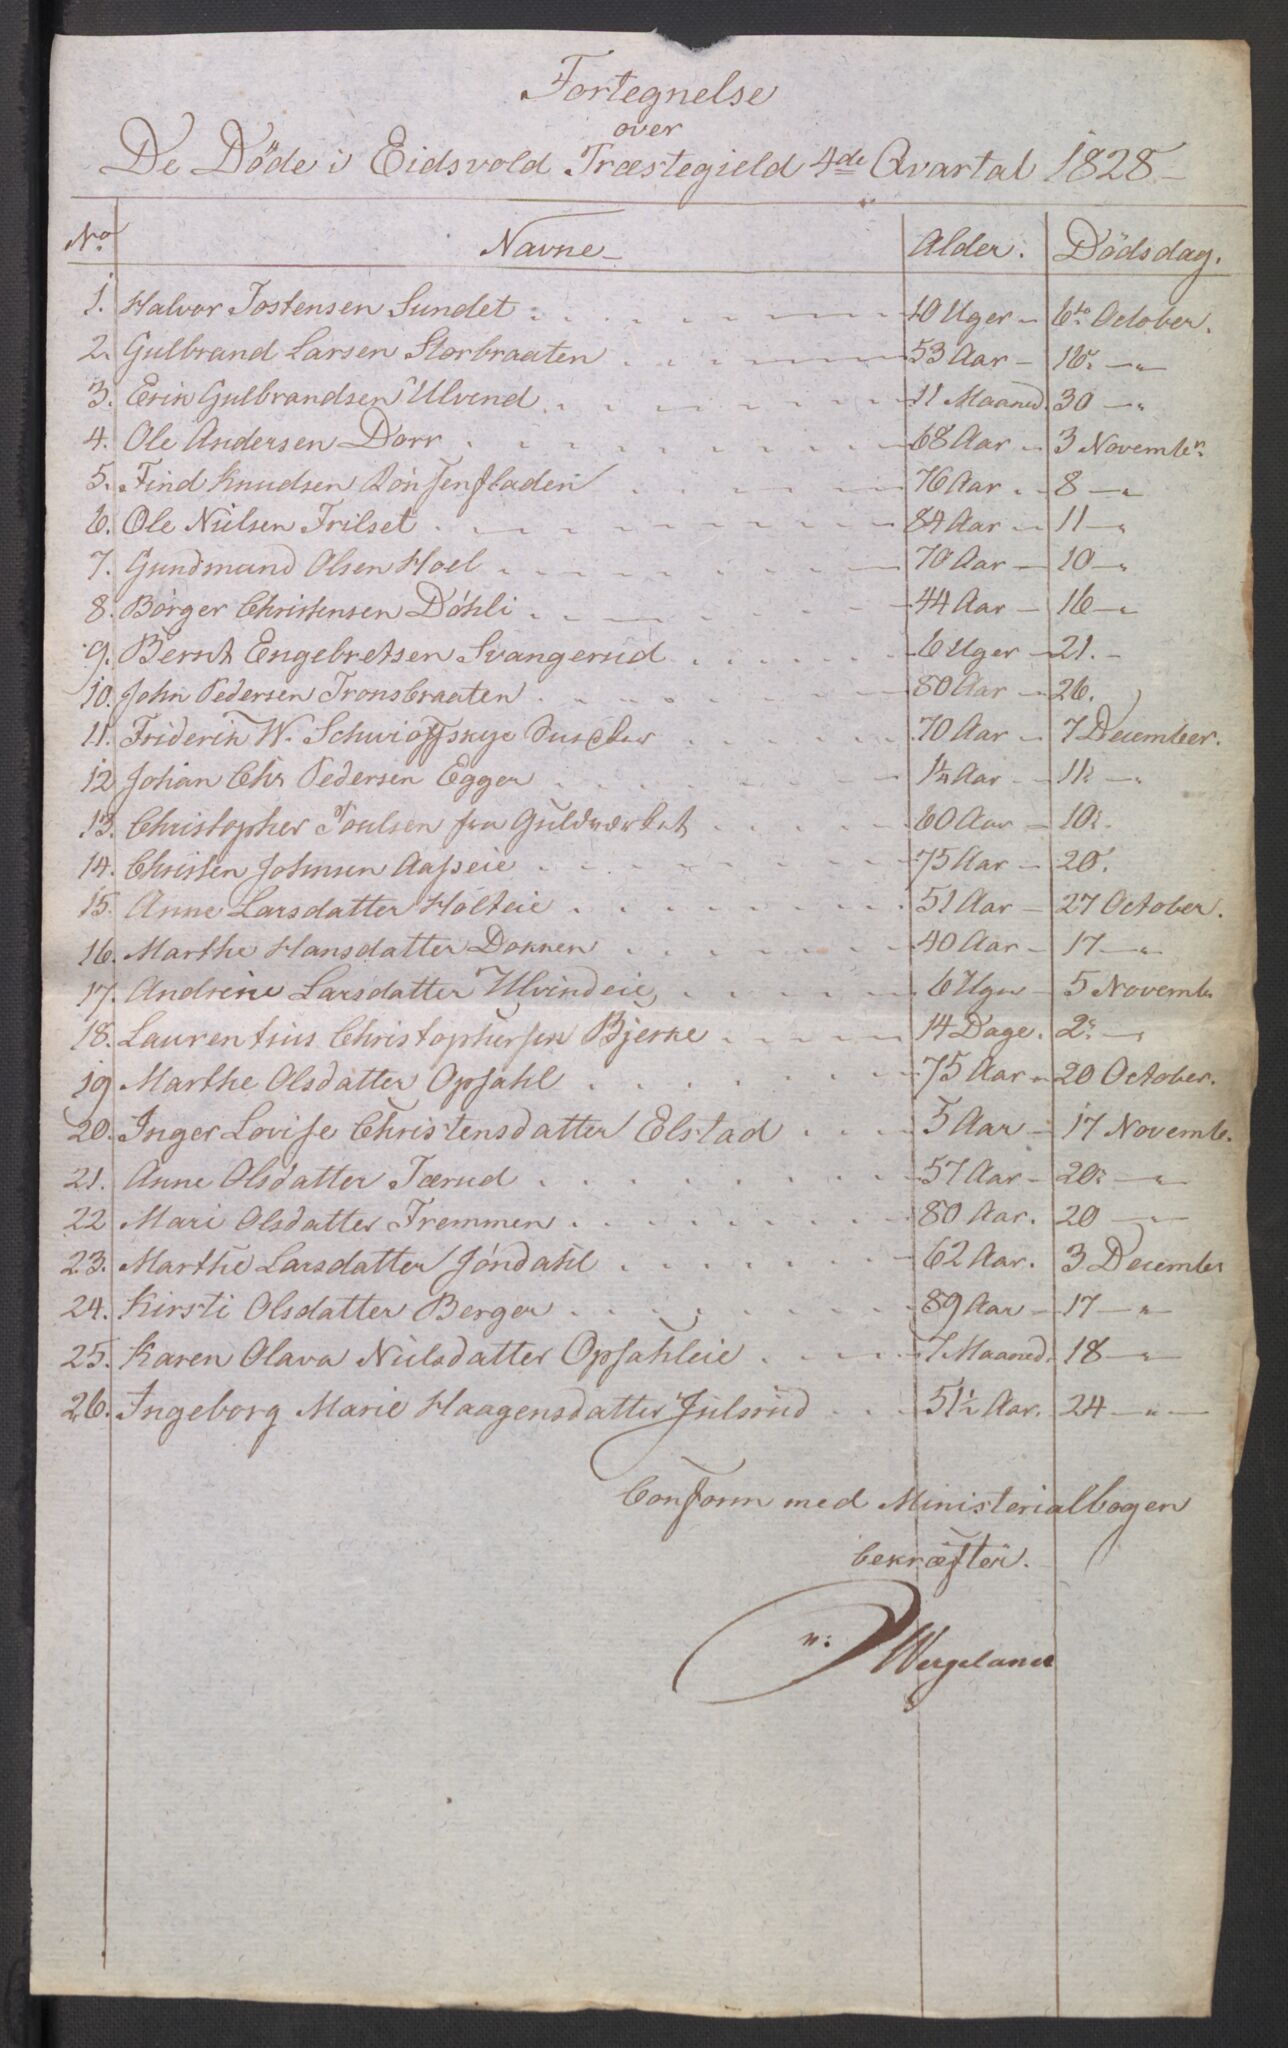 Fortegnelse
over
De Döde i Eidsvold Præstegield 4de Qvartal 1828
No Navne Alder. Dödsdag.
1. Halvor Tostensen Sundet 10 Uger 6te October.
2. Gulbrand Larsen Storbraaten 53 Aar 16 — "
3. Erik Gulbrandsen Ulvend 11 Maaned 30 — "
4. Ole Andersen Dorr 68 Aar 3 Novembr.
5. Find Knudsen 76 Aar 8 — "
6. Ole Nielsen Frilset 84 Aar 11 — "
7. Gundmund Olsen Hoel 70 Aar 10 — "
8. Börger Christensen Döhli 44 Aar 16 — "
9. Bernt Engebretsen Svangerud 6 Uger 21.
10. John Pedersen Tronsbraaten 80 Aar 26.
11. Friderik W. 70 Aar 7 December.
12 Johan Chr Pedersen Egger Aar 11 — "
13. Christopher Poulsen fra Guldværket 60 Aar 10.
14. Christen Johnsen Aasseie 75 Aar 20.
15. Anne Larsdatter Holteie 51 Aar 27 October.
16. Marthe Hansdatter Dokken 40 Aar 17 — "
17. Andrine Larsdatter Ulvindeie 6 Uger 5 Novemb
18. Laurentius Christophersen Bjerke 14 Dage. 2 — "
19 Marthe Olsdatter Opsahl 75 Aar 20 October.
20. Inger Lovise Christensdatter Elstad 5 Aar 17 Novemb.
21. Anne Olsdatter Tærud 57 Aar 20 — "
22 Mari Olsdatter Fremmen 80 Aar. 20 — "
23. Marthe Larsdatter Jöndahl 62 Aar. 3 December
24. Kirsti Olsdatter Berger 89 Aar 17 — "
25. Karen Olava Nielsdatter Opsahleie 7 Maaned. 18 — "
26. Ingeborg Marie Haagensdatter Julsrud 5½ Aar. 24 — " —
Conform med Ministerialbogen
bekræfter.
N: Wergeland